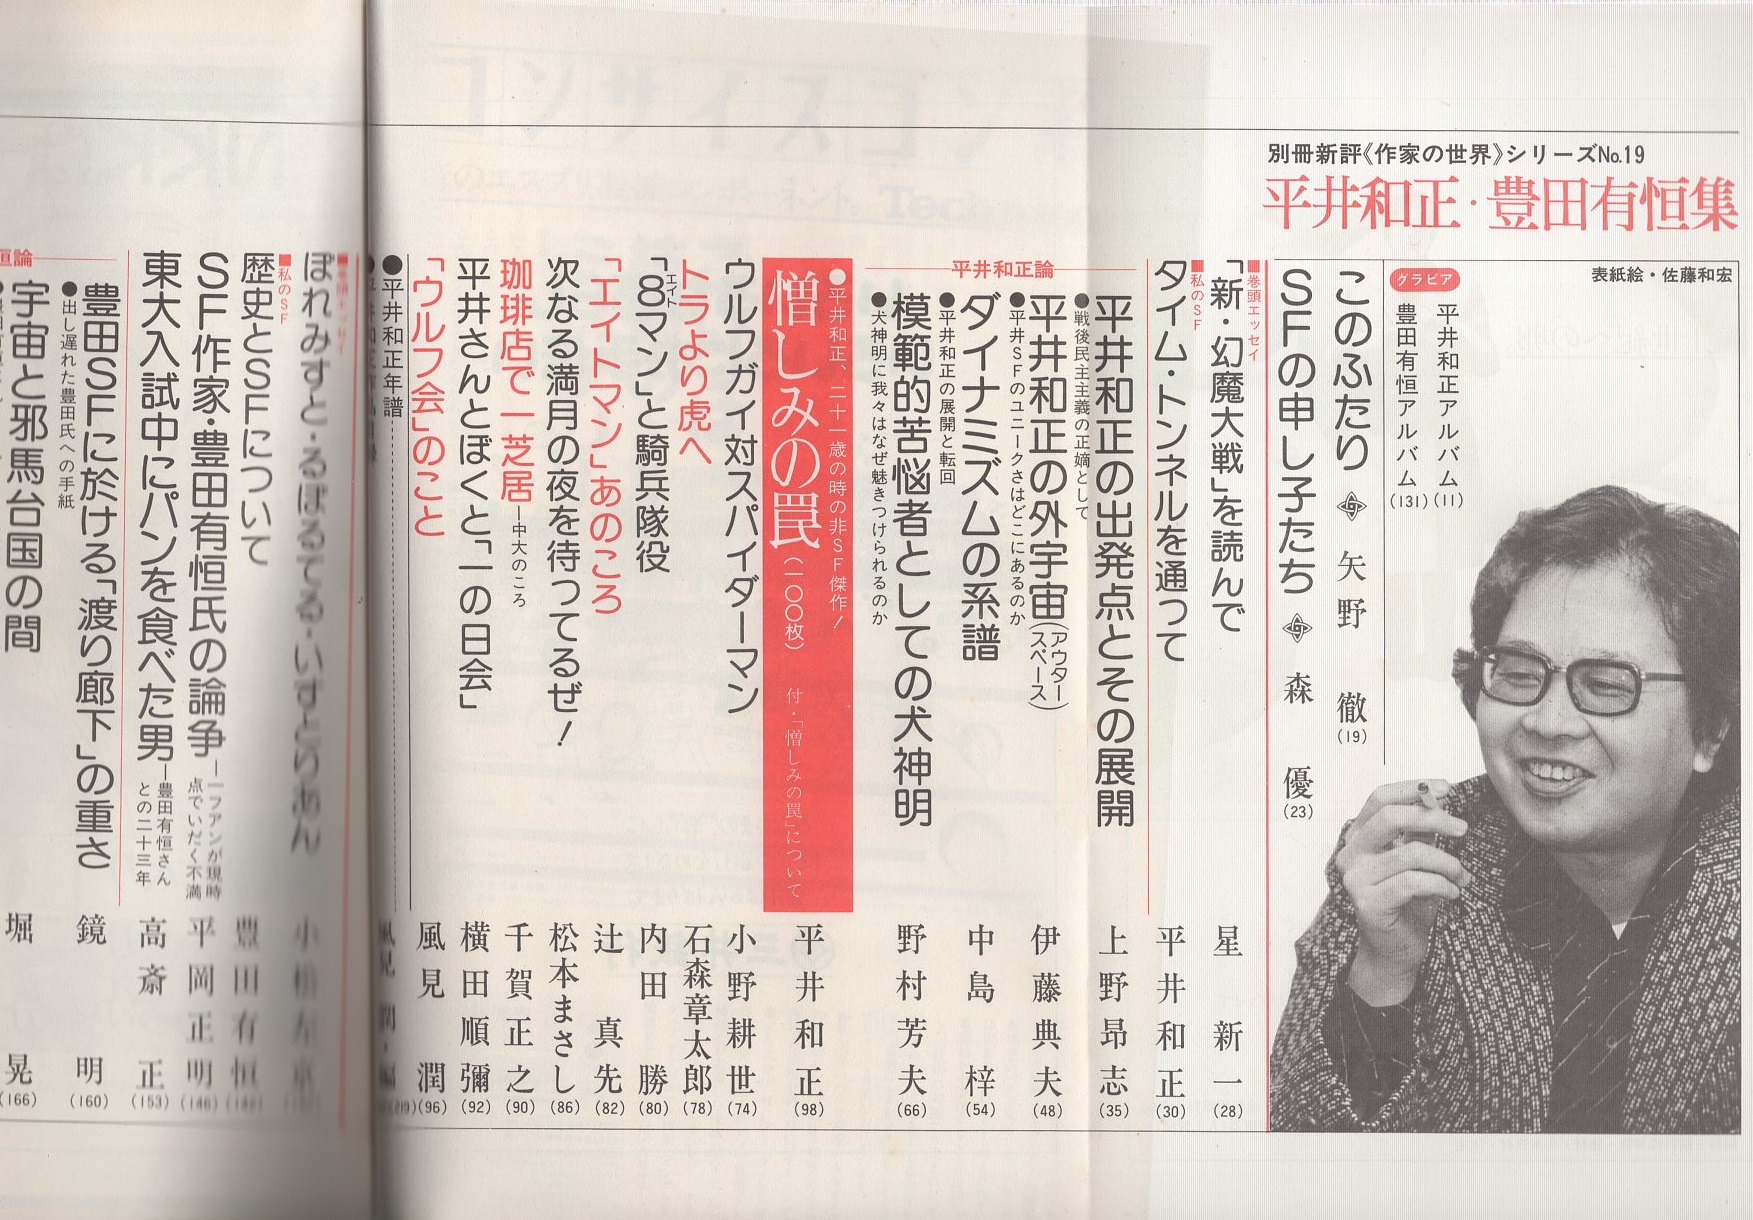 別冊新評《作家の世界》シリーズNo.19
平井和正・豊田有恒集
表紙絵・佐藤和宏
グラビア
平井和正アルバム(11)
豊田有恒アルバム(131)
このふたり 矢野 徹(19)
SFの申し子たち 森 優(23)
■巻頭エッセイ
「新・幻魔大戦」を読んで 星 新一(28)
■私のSF
タイム・トンネルを通って 平井和正(30)
平井和正論
平井和正の出発点とその展開 上野昂志(35)
●戦後民主主義の正嫡として
平井和正の外宇宙(アウタースペース) 伊藤典夫(48)
●平井SFのユニークさはどこにあるのか
ダイナミズムの系譜 中島 梓(54)
●平井和正の展開と転回
模範的苦悩者としての犬神明 野村芳夫(66)
●犬神明に我々はなぜ魅きつけられるのか
●平井和正、二十一歳の時の非SF傑作!
憎しみの罠(一〇〇枚) 付・「憎しみの罠」について 平井和正(98)
ウルフガイ対スパイダーマン 小野耕世(74)
トラより虎へ 石森章太郎(78)
「8マン」と騎兵隊役 内田 勝(80)
エイト
「エイトマン」あのころ 辻 真先(82)
次なる満月の夜を待つてるぜ! 松本まさし(86)
珈琲店で一芝居―中大のころ 千賀正之(90)
平井さんとぼくと「一の日会」 横田順彌(92)
「ウルフ会」のこと 風見 潤(96)
●平井和正年譜
風見 潤・編
ぽれみすと・るぽるてる・いすとりあん
■私のSF
歴史とSFについて 豊田有恒
SF作家・豊田有恒氏の論争―一フアンが現時点でいだく不満 平岡正明(146)
東大入試中にパンを食べた男―豊田有恒さんとの二十三年 高斎 正(153)
恒論
豊田SFに於ける「渡り廊下」の重さ 鏡 明(160)
●出し遅れた豊田氏への手紙
宇宙と邪馬台国の間 堀 晃(166)